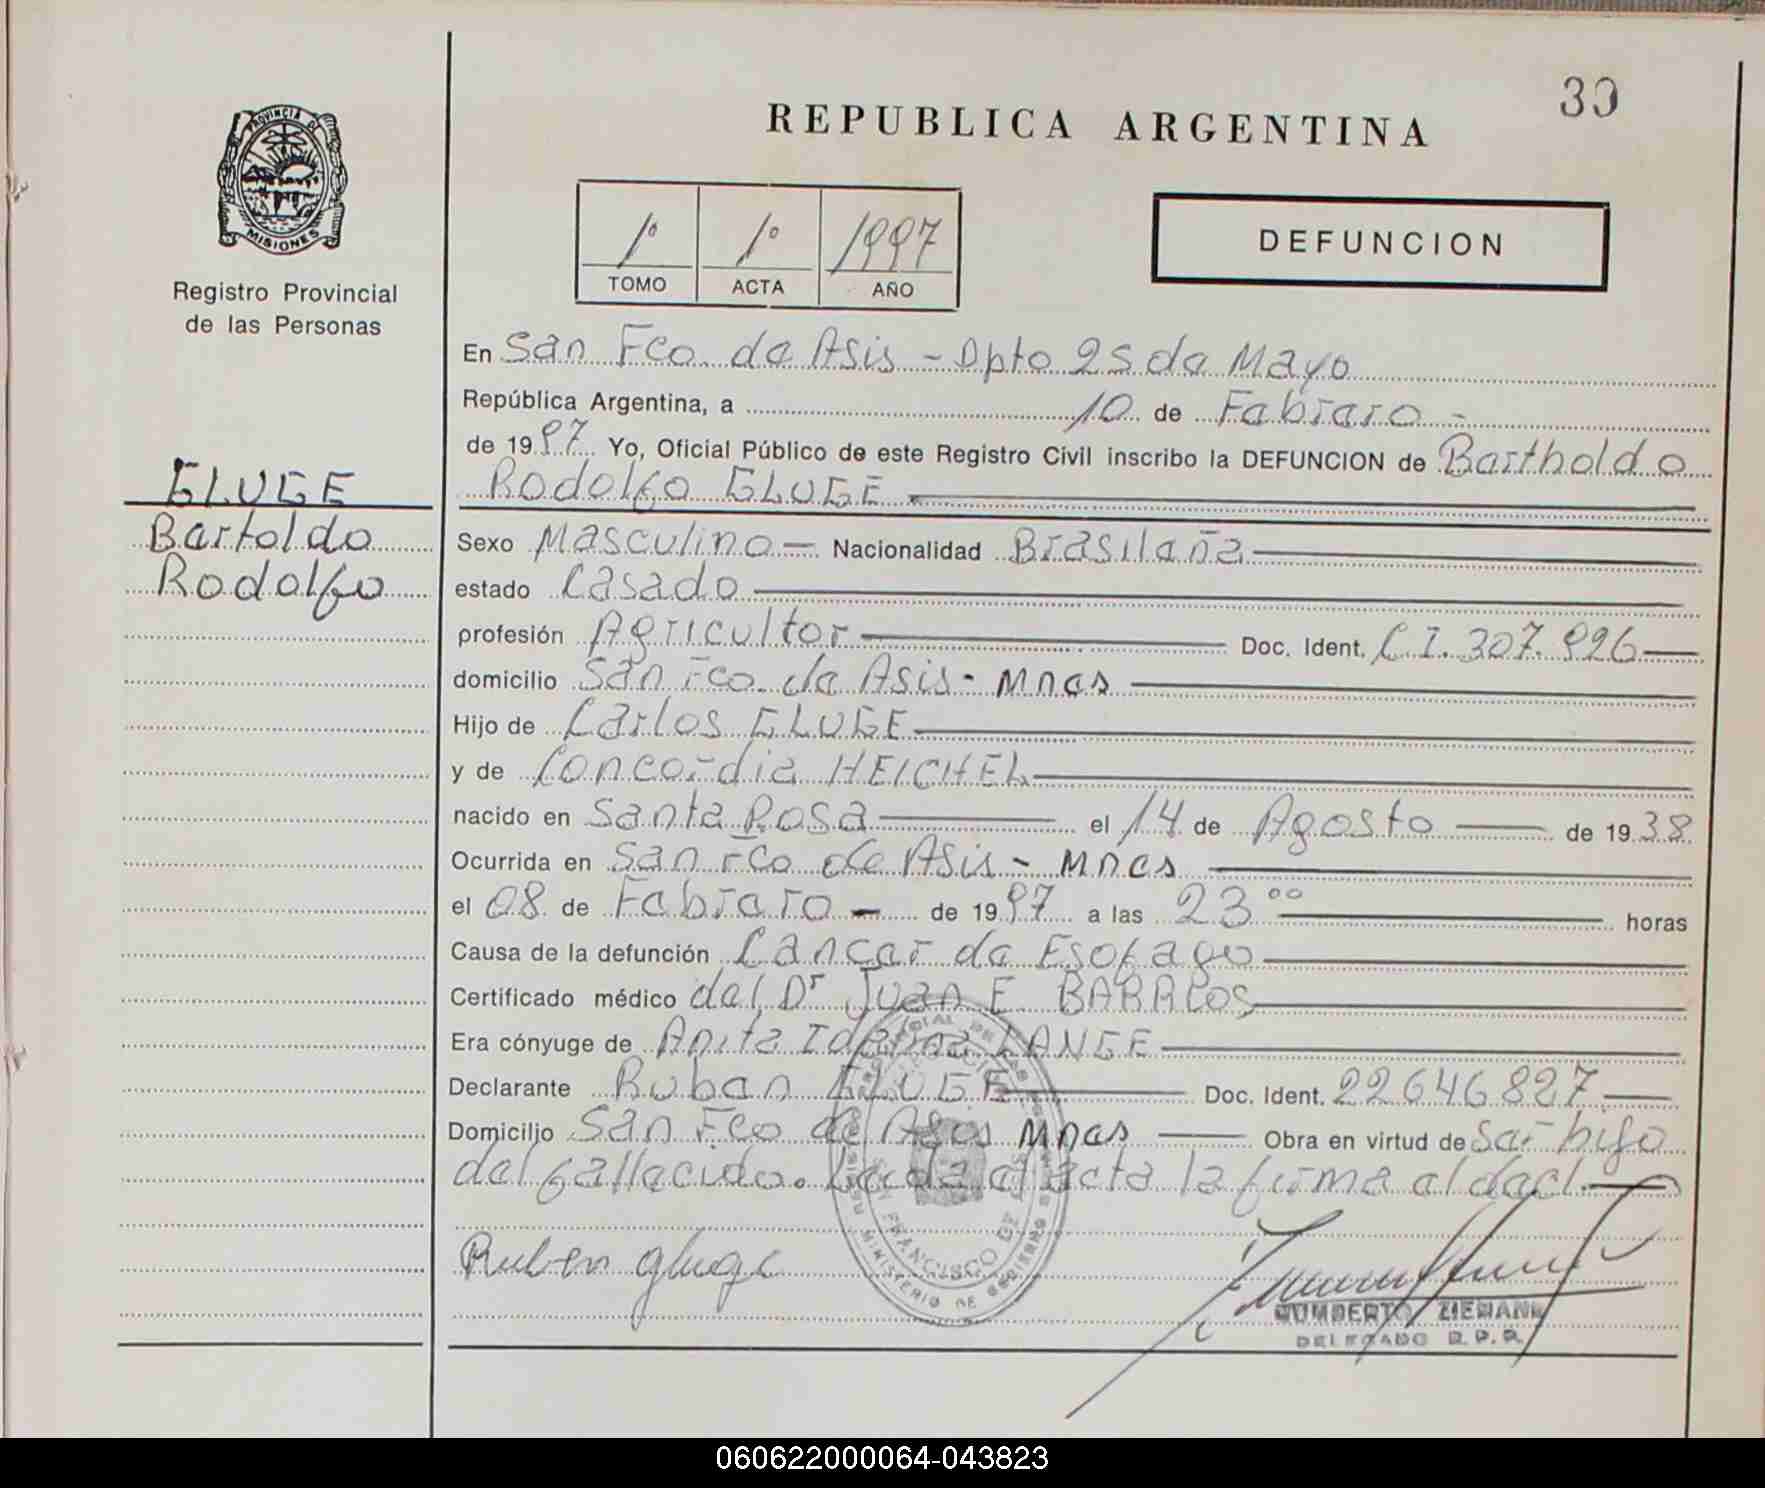 30
REPUBLICA ARGENTINA
PROVINCIA DE
MISIONES
Registro Provincial
de las Personas
1º 1º 1997
TOMO ACTA AÑO
DEFUNCION
En San Fco. de Asis - Dpto 25 de Mayo
República Argentina, a 10 de Febrero -
de 1997 Yo, Oficial Público de este Registro Civil inscribo la DEFUNCION de Bartholdo
Rodolfo GLUGE
GLUGE
Bartoldo
Rodolfo
Sexo Masculino - Nacionalidad Brasileña
estado Casado
profesión Agricultor Doc. Ident. C.I. 307.926
domicilio San Fco. de Asis - Mnes
Hijo de Carlos GLUGE
y de Concordia HEICHEL
nacido en Santa Rosa el 14 de Agosto de 1938
Ocurrida en San Fco de Asis - Mnes
el 08 de Febrero - de 1997 a las 23 ºº horas
Causa de la defunción Cancer de Esofago
Certificado médico del Dr Juan E. BARRIOS
Era cónyuge de Anita LANGE
Declarante Ruben GLUGE Doc. Ident. 22646827
Domicilio San Fco de Asis Mnes Obra en virtud de Ser hijo
del fallecido. Leida el acta la firma el decl.
Ruben gluge
FRANCISCO DE
MINISTERIO DE GOBIERNO
HUMBERTO ZIEMANN
DELEGADO R.P.P.
060622000064-043823